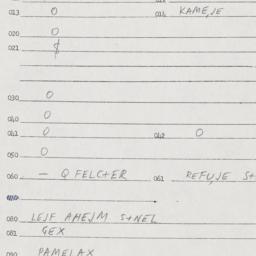 013 0 014 KAMEJE
020 0
021 $
030 0
040 0
041 0 042 0
050 0
060 — Q FELC+ER 061 REFUJE S+
080 LEJF AHEJM S+NEL
081 GEX
090 PAMELAX